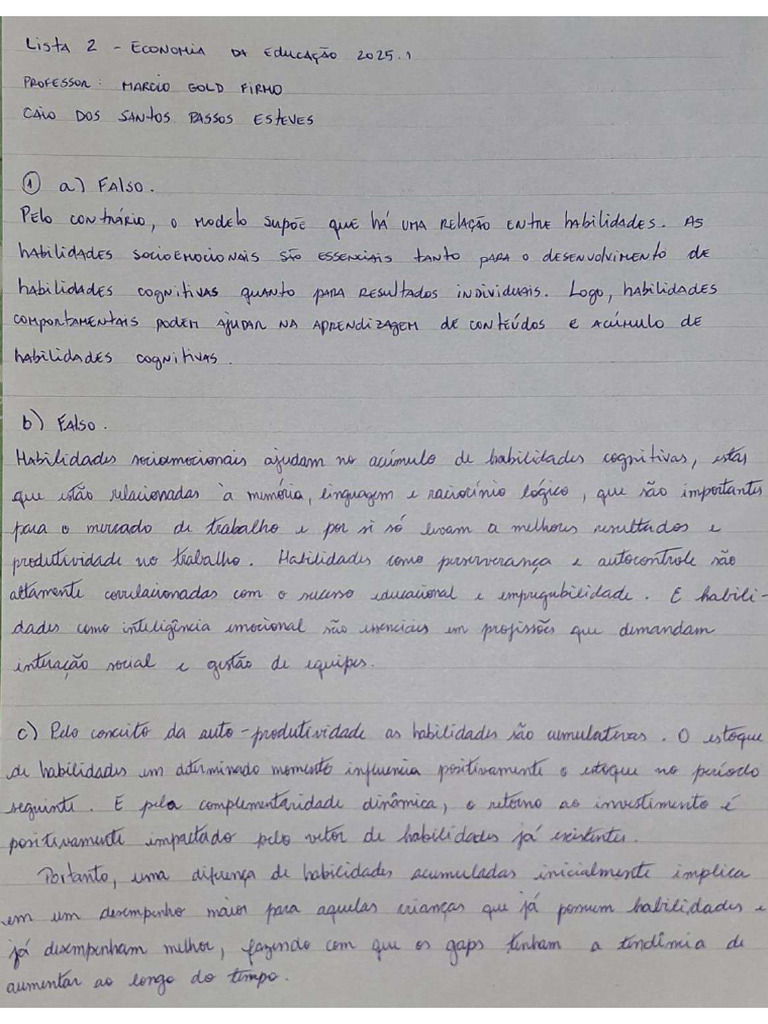 Lista 2 - Economia da Educação 2025.1
Professor: Marcio Gold Firmo
Caio dos Santos Passos Esteves
① a) Falso.
Pelo contrário, o modelo supõe que há uma relação entre habilidades. As
habilidades socioemocionais são essenciais tanto para o desenvolvimento de
habilidades cognitivas quanto para resultados individuais. Logo, habilidades
comportamentais podem ajudar na aprendizagem de conteúdos e acúmulo de
habilidades cognitivas.
b) Falso.
Habilidades socioemocionais ajudam no acúmulo de habilidades cognitivas, estas
que estão relacionadas à memória, linguagem e raciocínio lógico, que são importantes
para o mercado de trabalho e por si só levam a melhores resultados e
produtividade no trabalho. Habilidades como perserverança e autocontrole são
altamente correlacionadas com o sucesso educacional e empregabilidade. E habili-
dades como inteligência emocional são essenciais em profissões que demandam
interação social e gestão de equipes.
c) Pelo conceito da auto-produtividade as habilidades são acumulativas. O estoque
de habilidades em determinado momento influencia positivamente o estoque no período
seguinte. E pela complementaridade dinâmica, o retorno ao investimento é
positivamente impactado pelo vetor de habilidades já existentes.
Portanto, uma diferença de habilidades acumuladas inicialmente implica
em um desempenho maior para aquelas crianças que já possuem habilidades e
já desempenham melhor, fazendo com que os gaps tenham a tendência de
aumentar ao longo do tempo.